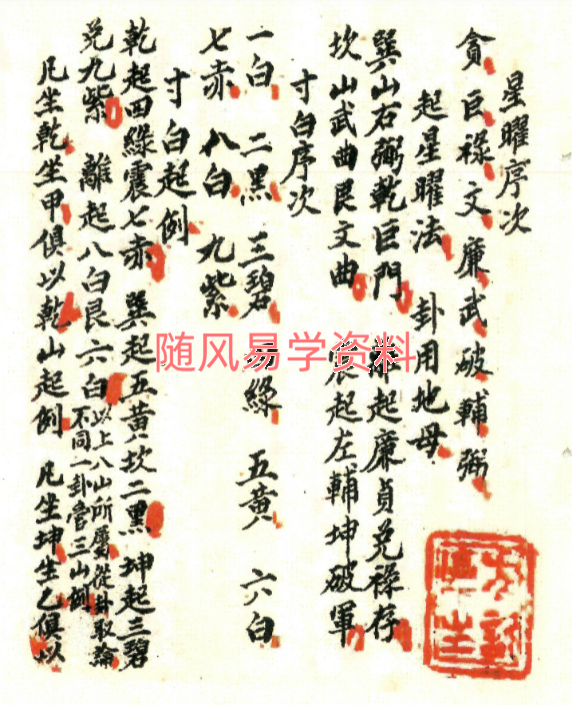 星曜序次
貪 巨 祿 文 廉 武 破 輔 弼
起星曜法 卦用地母
巽山右弼乾巨門 起廉貞兌祿存
坎山武曲艮文曲 震起左輔坤破軍
寸白序次
一白 二黑 三碧 四綠 五黃 六白
七赤 八白 九紫
寸白起例
乾起四綠震七赤 巽起五黃坎二黑 坤起三碧
兌九紫 離起八白艮六白 以上八山所屬從卦取論
不同一卦管三山例
凡坐乾坐甲俱以乾山起例 凡坐坤坐乙俱以
随风易学资料